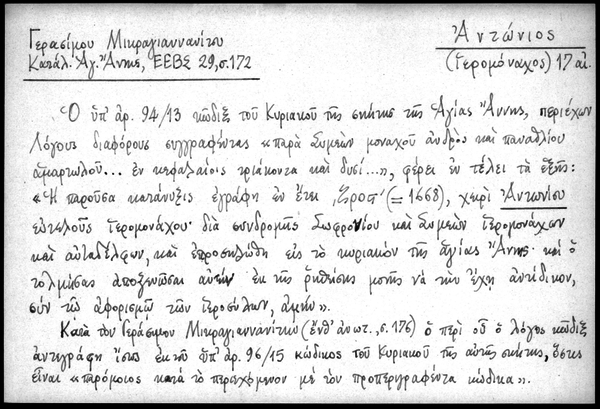 Γερασίμου Μικραγιαννανίτου
Κατάλ. Ἁγ. Ἄννης, ΕΕΒΣ 29, σ. 172
Ἀντώνιος
(ἱερομόναχος) 17 αἰ.
Ὁ ὑπ' ἀρ. 94/13 κῶδιξ τοῦ Κυριακοῦ τῆς σκήτης τῆς Ἁγίας Ἄννης, περιέχων
λόγους διαφόρους συγγραφέντας «παρὰ Συμεὼν μοναχοῦ ἀνδρὸς καὶ παναθλίου
ἁμαρτωλοῦ... ἐν κεφαλαίοις τριάκοντα καὶ δυσί...», φέρει ἐν τέλει τὰ ἑξῆς:
«Ἡ παροῦσα κατάνυξις ἐγράφη ἐν ἔτει (= 1668), χειρὶ Ἀντωνίου
εὐτελοῦς ἱερομονάχου· διὰ συνδρομῆς Σωφρονίου καὶ Συμεὼν ἱερομονάχων
καὶ αὐταδέλφων, καὶ ἐπροσηλώθη εἰς τὸ κυριακὸν τῆς ἁγίας Ἄννης· καὶ ὁ
τολμήσας ἀποξενῶσαι αὐτὴν ἐκ τῆς ῥηθείσης μονῆς νὰ τὴν ἔχῃ ἀντίδικον,
σὺν τῷ ἀφορισμῷ τῶν ἱεροσύλων, ἀμήν».
Κατὰ τὸν Γεράσιμον Μικραγιαννανίτην (ἔνθ' ἀνωτ., σ. 176) ὁ περὶ οὗ ὁ λόγος κῶδιξ
ἀντιγράφη ἴσως ἐκ τοῦ ὑπ' ἀρ. 96/15 κώδικος τοῦ Κυριακοῦ τῆς αὐτῆς σκήτης, ὅστις
εἶναι «παρόμοιος κατὰ τὸ περιεχόμενον μὲ τὸν προπεριγραφέντα κώδικα».